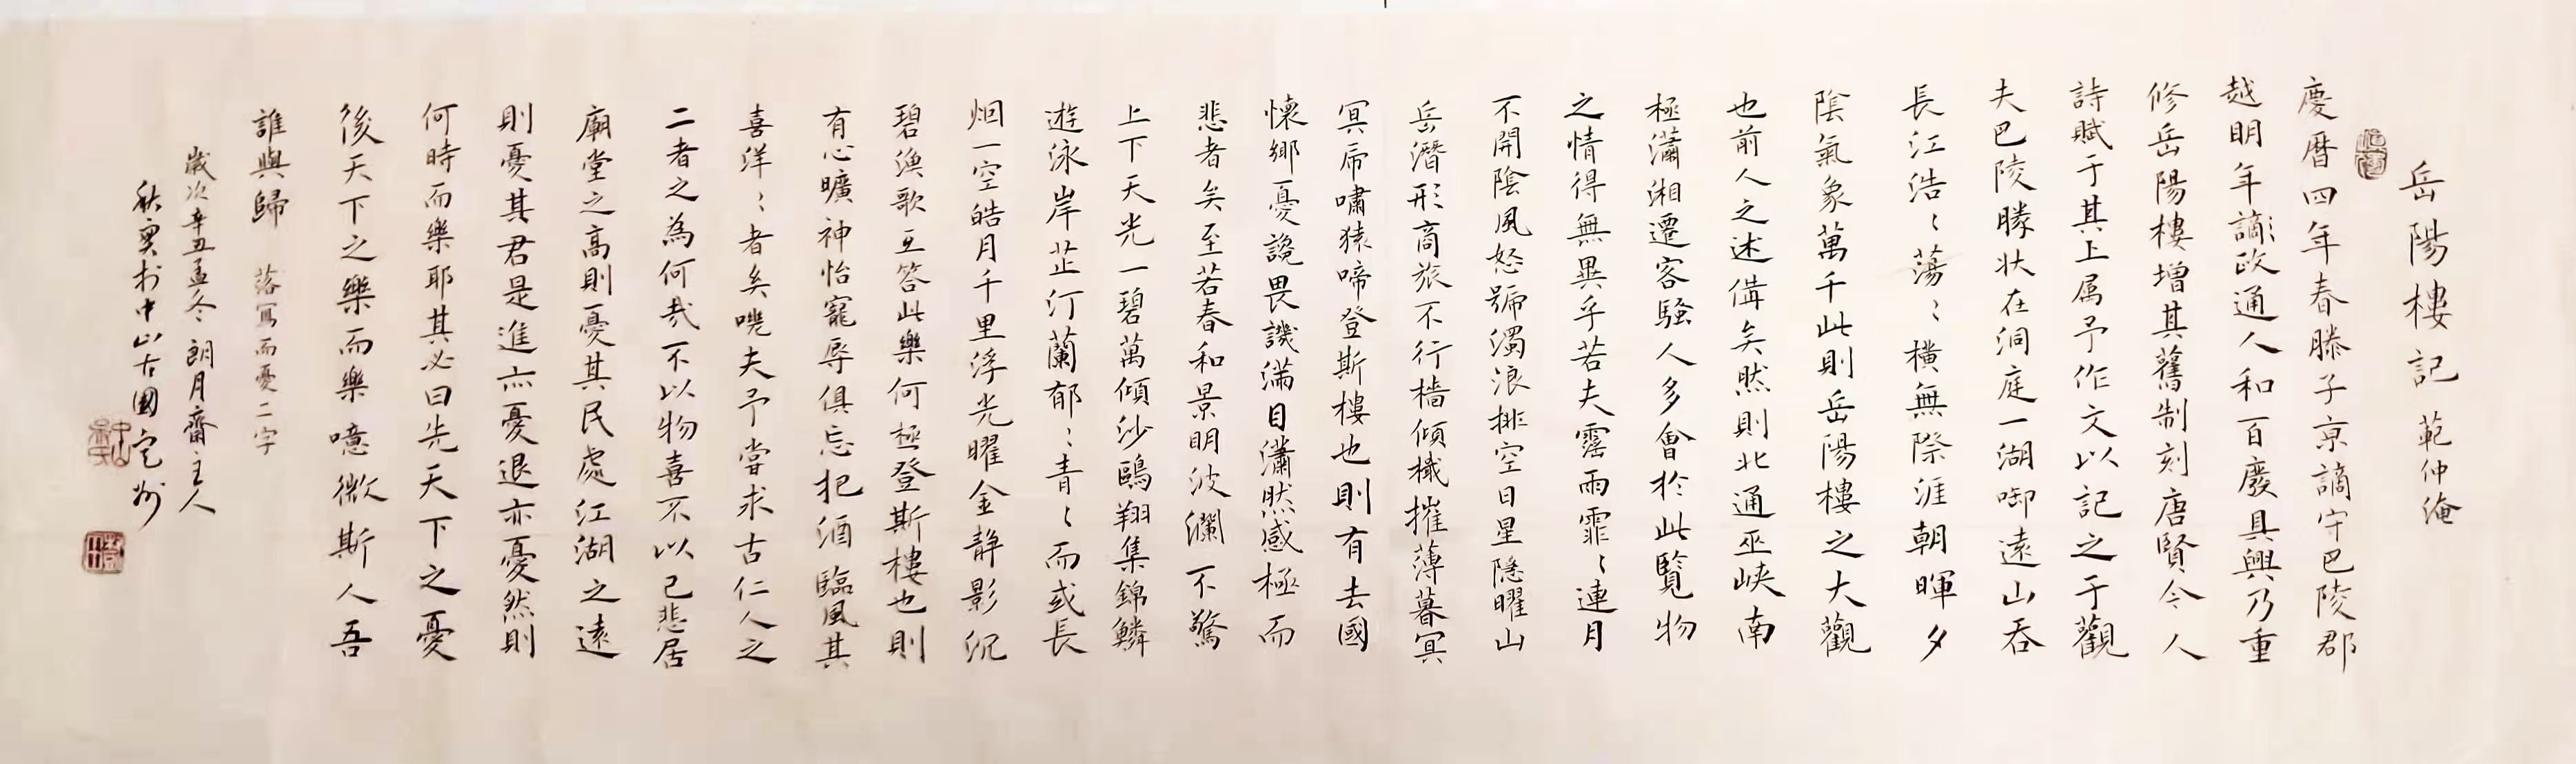 岳陽樓記 範仲淹
慶曆四年春滕子京謫守巴陵郡
越明年謫政通人和百廢具興乃重
修岳陽樓增其舊制刻唐賢今人
詩賦于其上属予作文以記之于觀
夫巴陵勝狀在洞庭一湖啣遠山吞
長江浩〻蕩〻橫無際涯朝暉夕
陰氣象萬千此則岳陽樓之大觀
也前人之述備矣然則北通巫峽南
極瀟湘遷客騷人多會於此覽物
之情得無異乎若夫霪雨霏〻連月
不開陰風怒號濁浪排空日星隱曜山
岳潛形商旅不行檣傾檝摧薄暮冥
冥乕嘯猿啼登斯樓也則有去國
懷鄉憂讒畏譏滿目瀟然感極而
悲者矣至若春和景明波瀾不驚
上下天光一碧萬傾沙鷗翔集錦鱗
遊泳岸芷汀蘭郁〻青〻而或長
烟一空皓月千里浮光曜金静影沉
碧漁歌互答此樂何極登斯樓也則
有心曠神怡寵辱俱忘把酒臨風其
喜洋〻者矣嘵夫予嘗求古仁人之
二者之為何哉不以物喜不以己悲居
廟堂之高則憂其民處江湖之遠
則憂其君是進亦憂退亦憂然則
何時而樂耶其必曰先天下之憂
後天下之樂而樂噫微斯人吾
誰與歸 落寫而憂二字
歲次辛丑孟冬朗月齋主人
秋實於中山古國定州